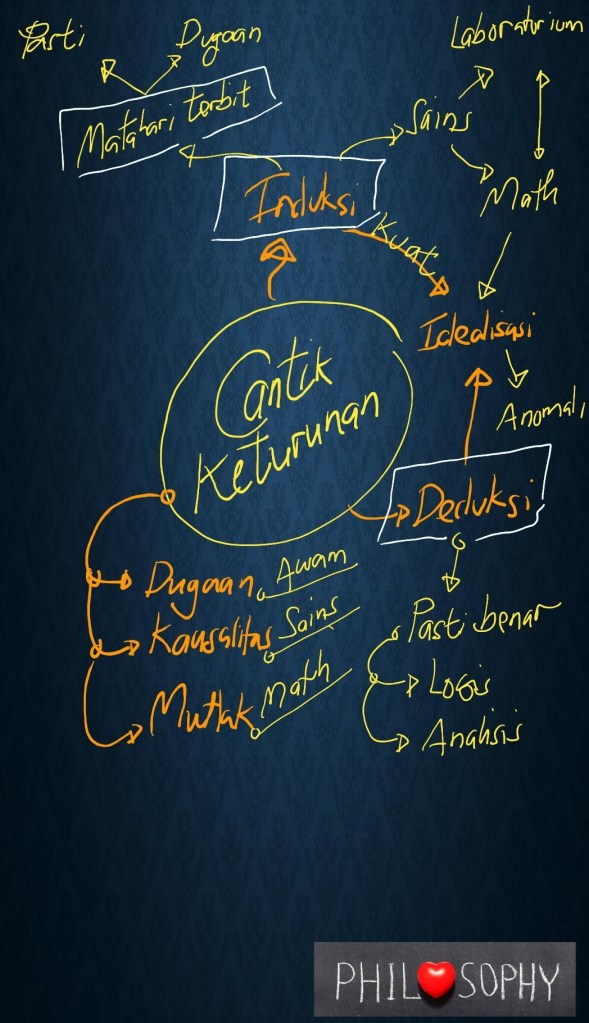 Pasti
Dugaan
Laboratorium
Matahari terbit
Sains
Math
Induksi
Kuat
Idealisasi
Anomali
Cantik
Keturunan
Deduksi
Dugaan Awam
Kausalitas Sains
Mutlak Math
Pasti benar
Logis
Analisis
PHILOSOPHY